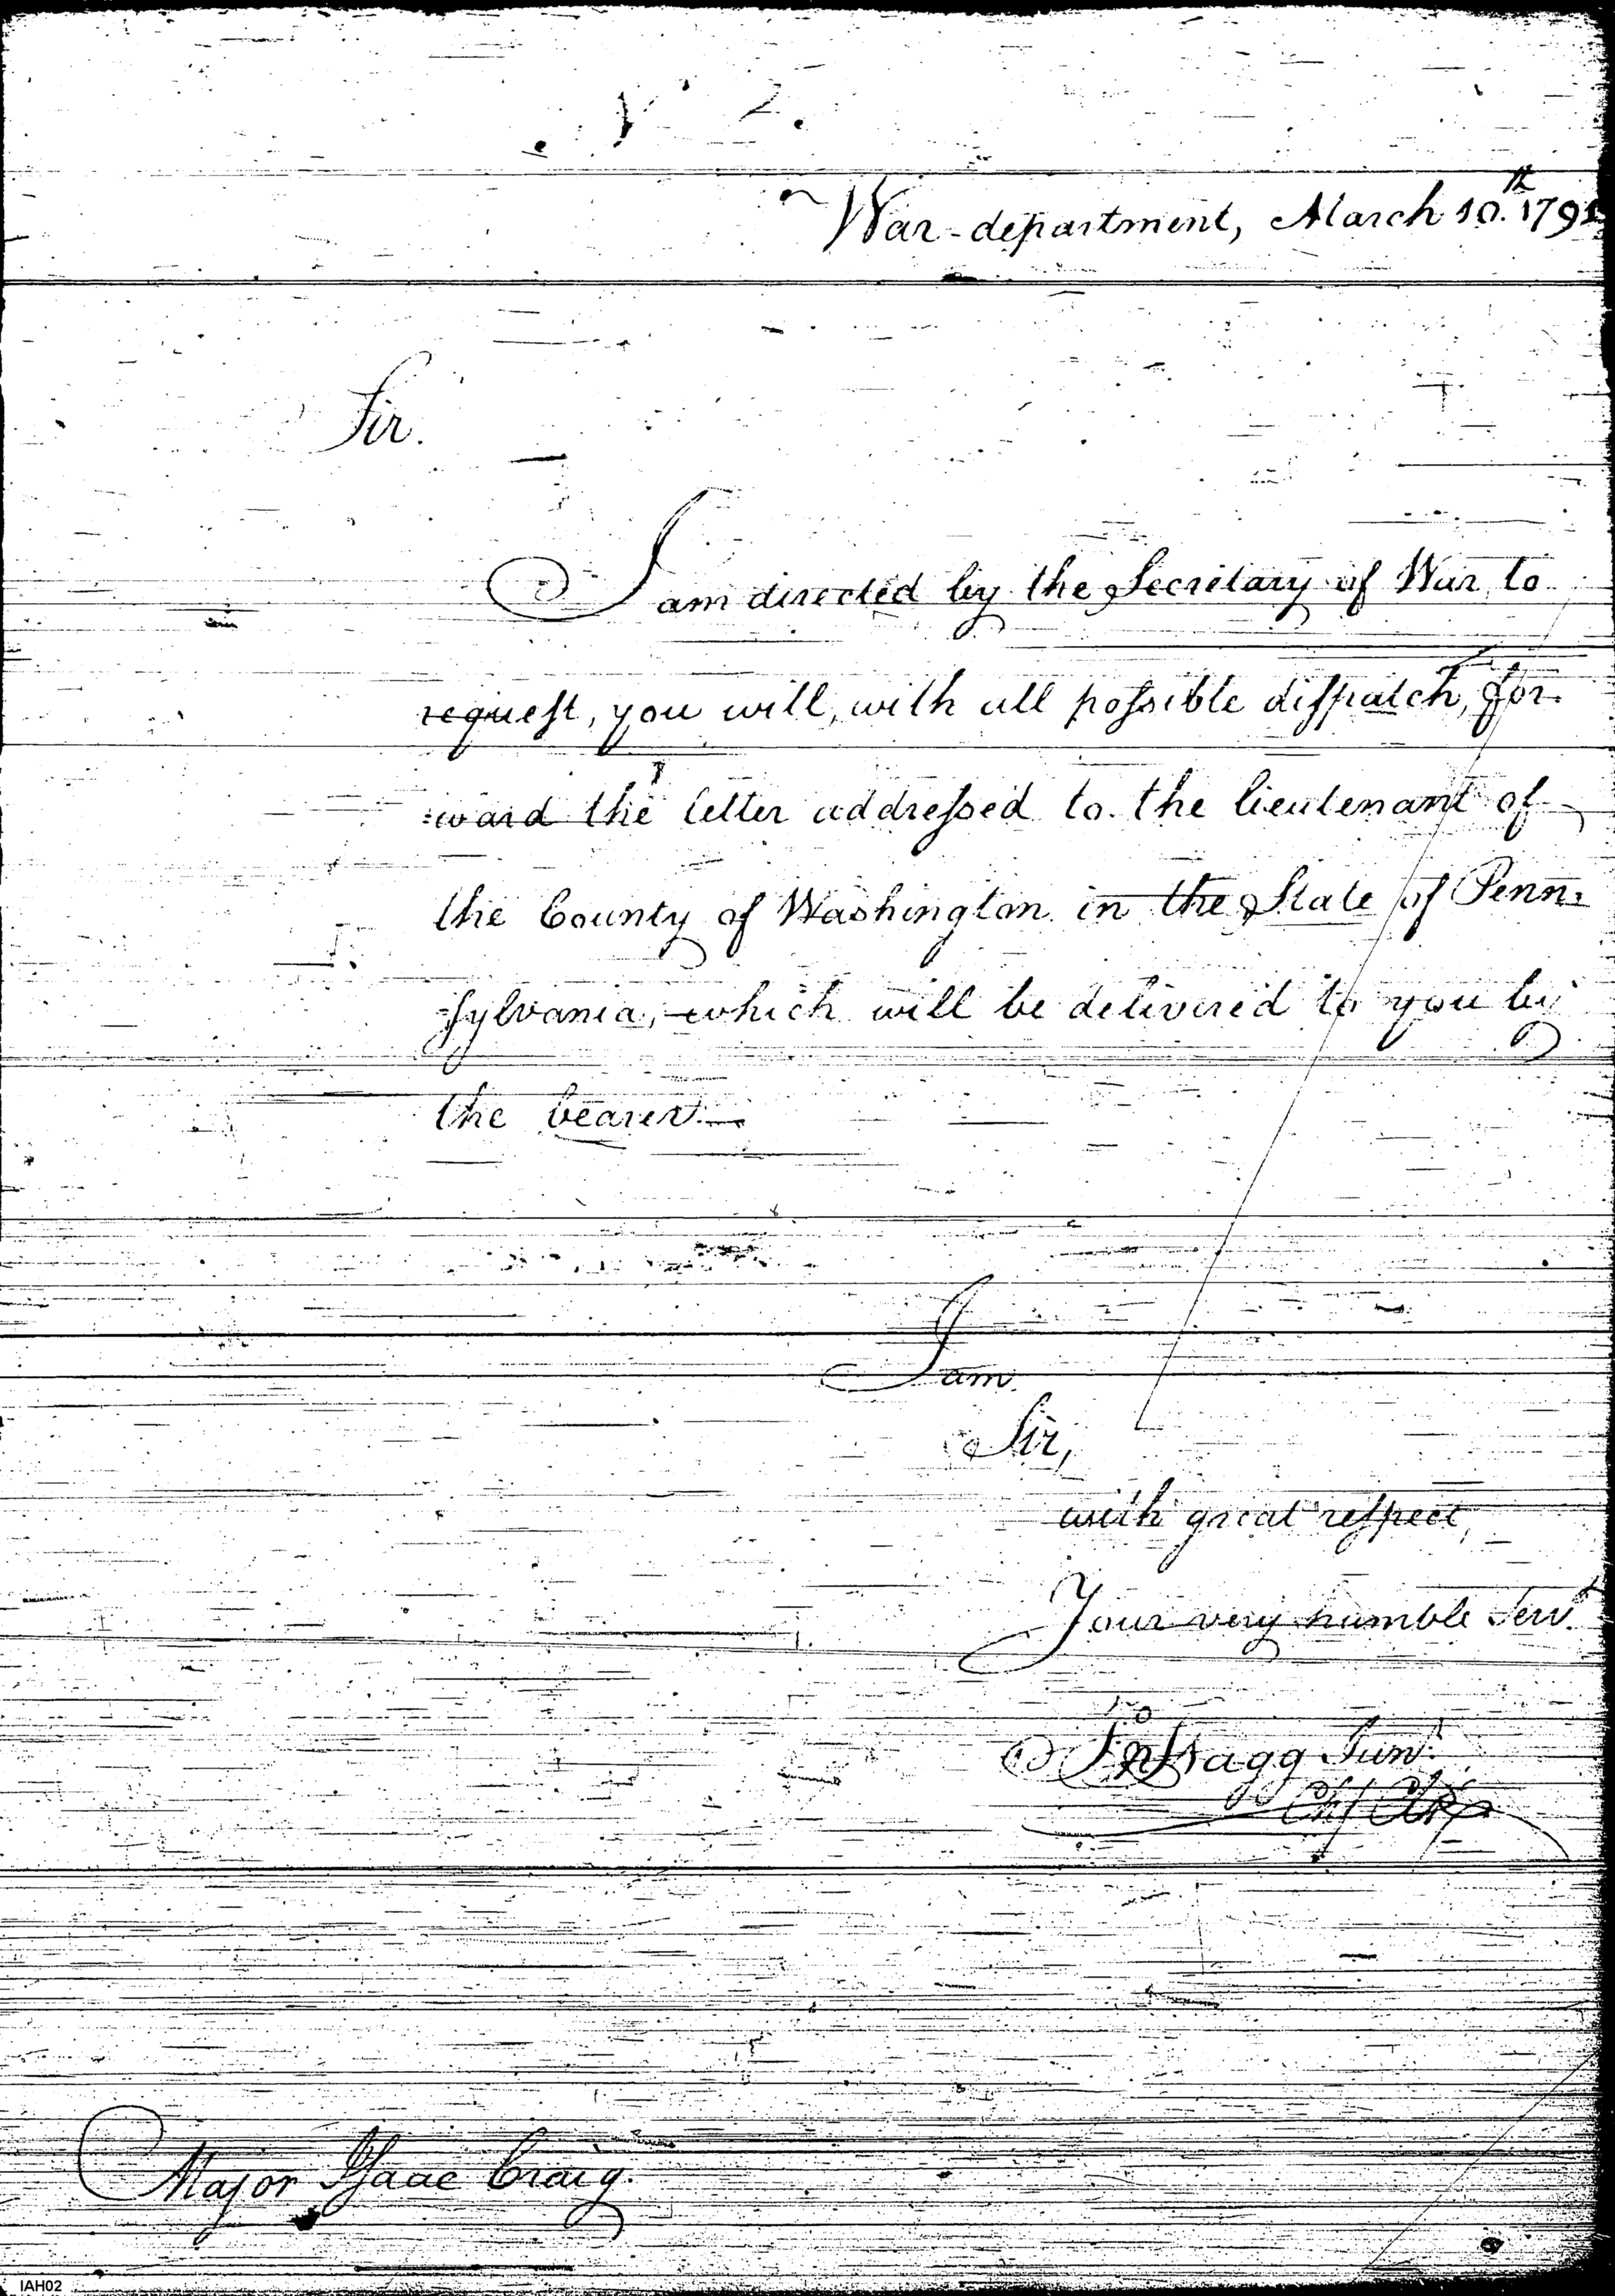 N° 2.
War-department, March 10.th 1791
Sir.
I am directed by the Secretary of War to
request, you will, with all possible dispatch, for-
:ward the letter addressed to the lieutenant of
the County of Washington in the State of Penn:
sylvania, which will be delivered to you by
the bearer.—
I am
Sir,
with great respect,
Your very humble Servt.
Jno Stagg Junr.
Chf Clk
Major Isaac Craig.
IAH02